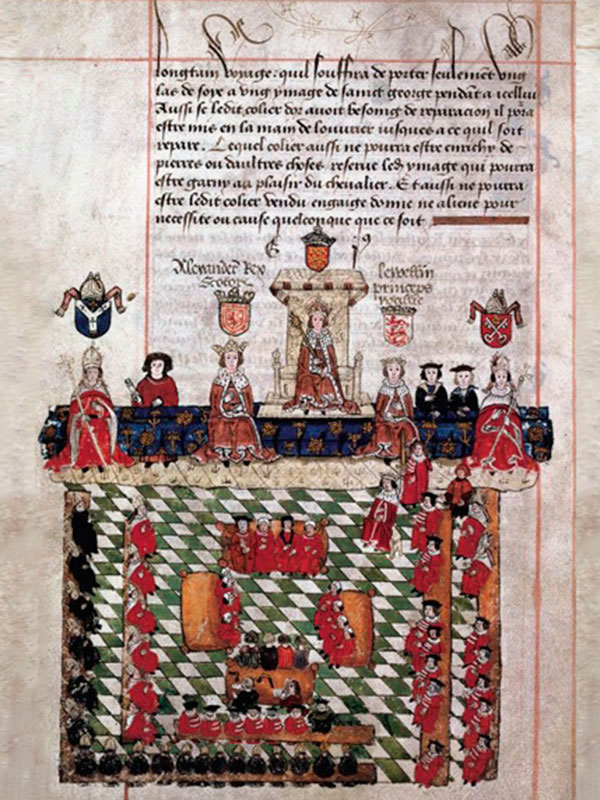 longtain voyage: quil souffira de porter seulement ung
las de soye a ung ymage de sainct george pendant a icellui
Aussi se ledit colier dor avoit besoing de reparacion il porra
estre mis en la main de louvrier iusques a ce quil soit
repare. Lequel colier aussi ne pourra estre enrichy de
pierres ou daultres choses reserve led ymage qui pourra
estre garny au plaisir du chevalier. Et aussi ne pourra
estre ledit colier vendu engaige donne ne aliene pour
necessite ou cause quelconque que ce soit
E 9
Alexander Rex
Scotorum
Lewellin
princeps